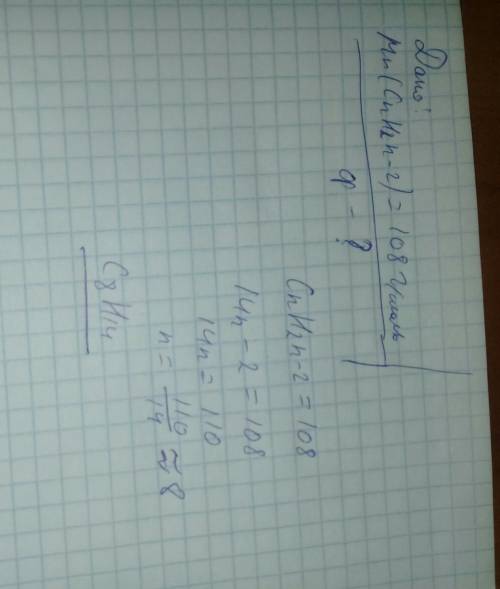 Дано:
Mм(CnH2n-2) = 108 г/моль
ф - ?
CnH2n-2 = 108
14n - 2 = 108
14n = 110
n = 110/14 ≈ 8
C8H14